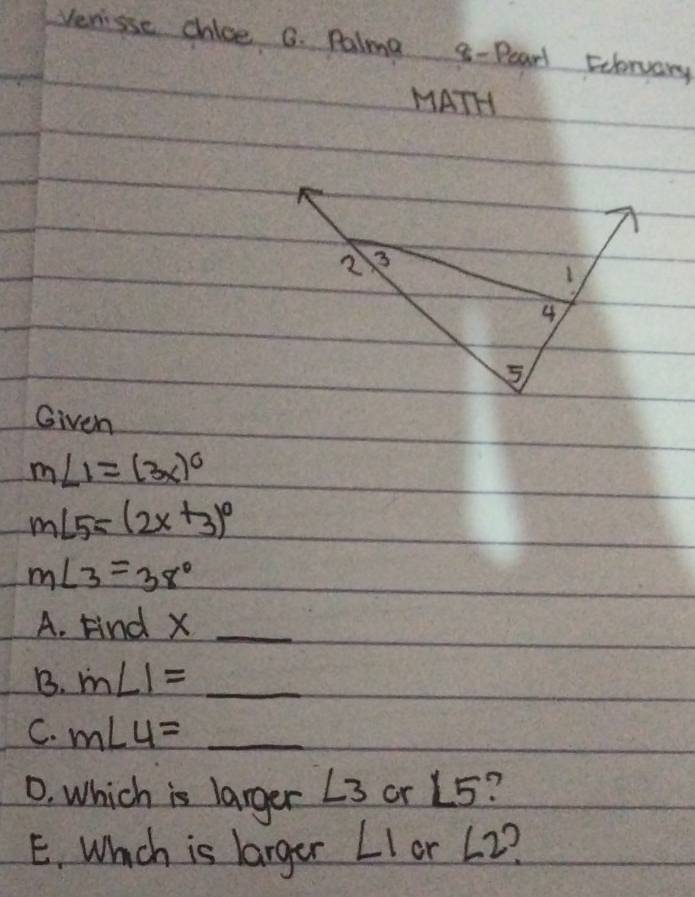 Venisse Chloe G. Palma 8-Pearl February
MATH
1
2 3
4
5
Given
m∠1 = (3x)°
m∠5= (2x +3)°
m∠3 = 38°
A. Find x ____
B. m∠1 = ____
C. m∠4 = ____
D. Which is larger ∠3 or ∠5?
E. Which is larger ∠1 or ∠2?